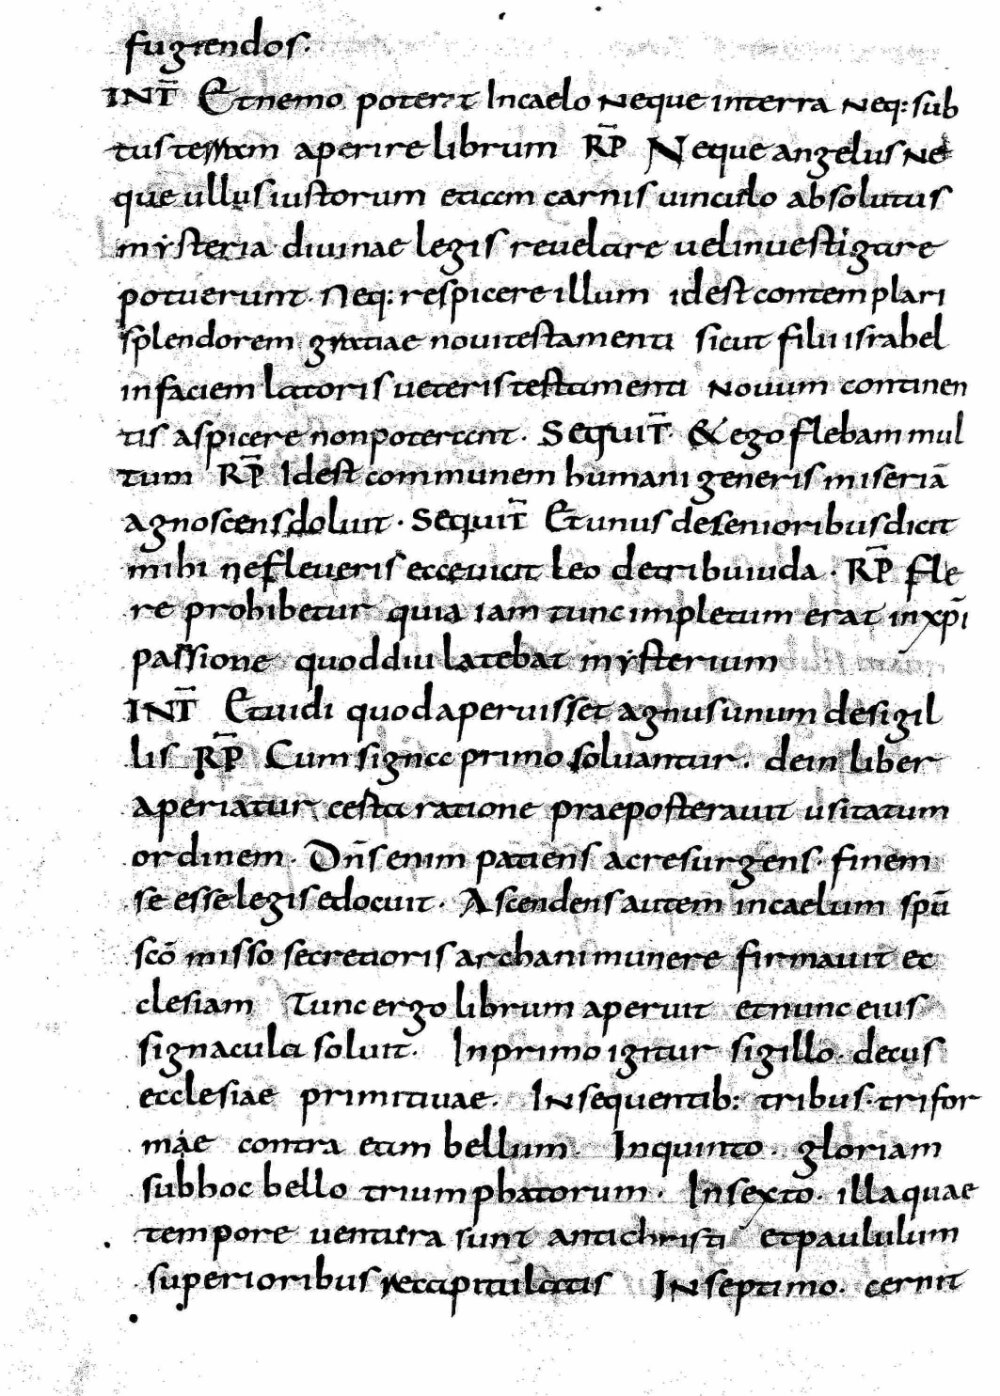 fugiendos.
INT̄ Et nemo poterat In caelo neque in terra neq: sub
tus terram aperire librum RP̄ Neque angelus ne
que ullus iustorum etiam carnis uinculo absolutus
mysteria diuinae legis reuelare uel inuestigare
potuerunt. Neq: respicere illum id est contemplari
splendorem gratiae noui testamenti sicut filii israhel
in faciem latoris ueteris testamenti nouum continen
tis aspicere non poterant. SEQUIT̄. & ego flebam mul
tum RP̄ Id est communem humani generis miseriā
agnoscens doluit. SEQUIT̄ Et unus de senioribus dicit
mihi ne fleueris ecce uicit leo de tribu iuda. RP̄ fle
re prohibetur quia iam tunc impletum erat in xp̄i
passione quod diu latebat mysterium
INT̄ Et uidi quod aperuisset agnus unum de sigil
lis RP̄ Cum signa primo soluantur. dein liber
aperiatur certa ratione praeposterauit usitatum
ordinem. Dn̄s enim patiens ac resurgens. finem
se esse legis edocuit. Ascendens autem in caelum spū
scō misso secretioris archani munere firmauit ec
clesiam Tunc ergo librum aperuit et nunc eius
signacula soluit. In primo igitur sigillo. decus
ecclesiae primitiuae. In sequentib: tribus. trifor
mae contra eam bellum. In quinto. gloriam
sub hoc bello triumphatorum. In sexto. illa quae
tempore uentura sunt antichristi et paululum
superioribus recapitulatis In septimo. cernit